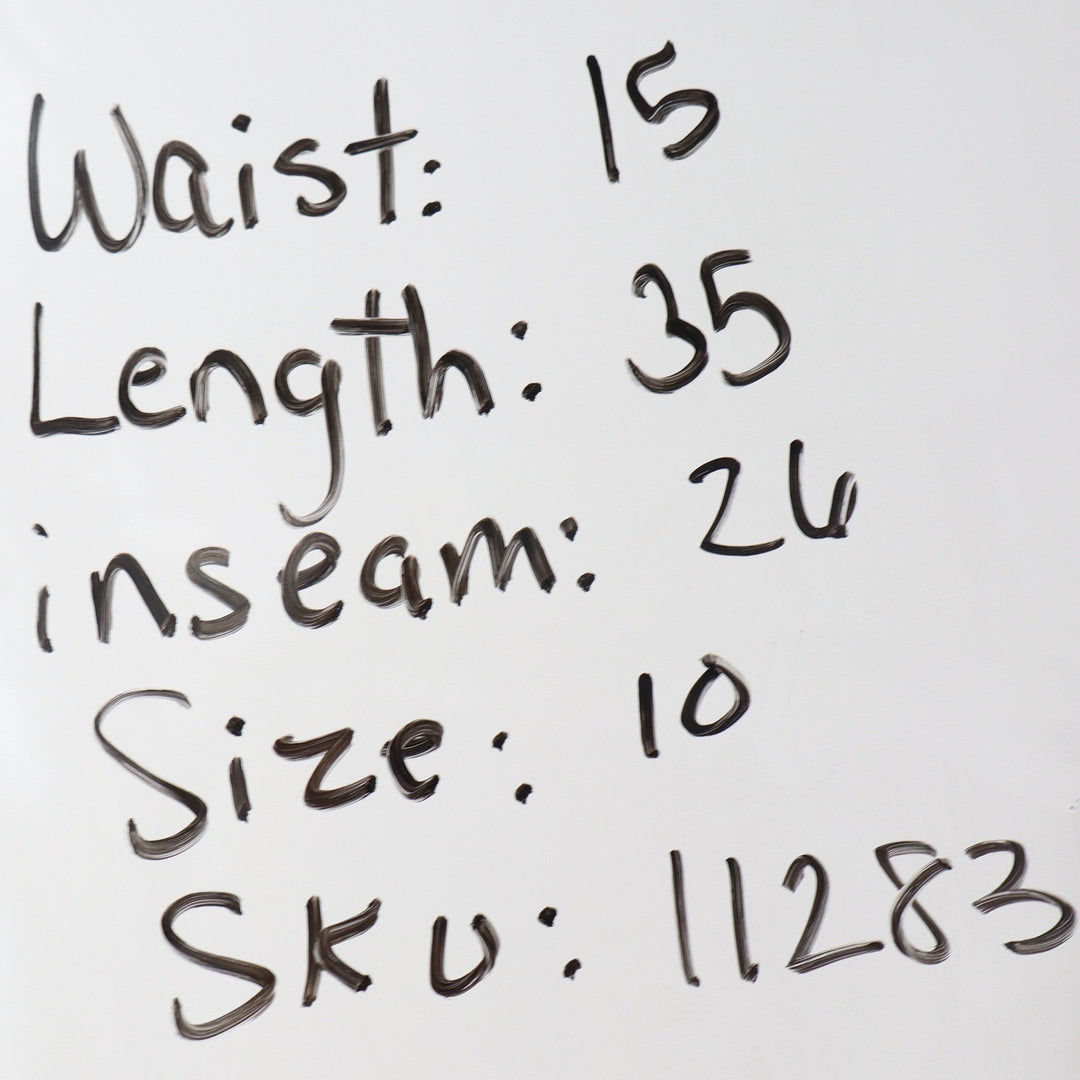 Waist: 15
Length: 35
inseam: 26
Size: 10
SKU: 11283